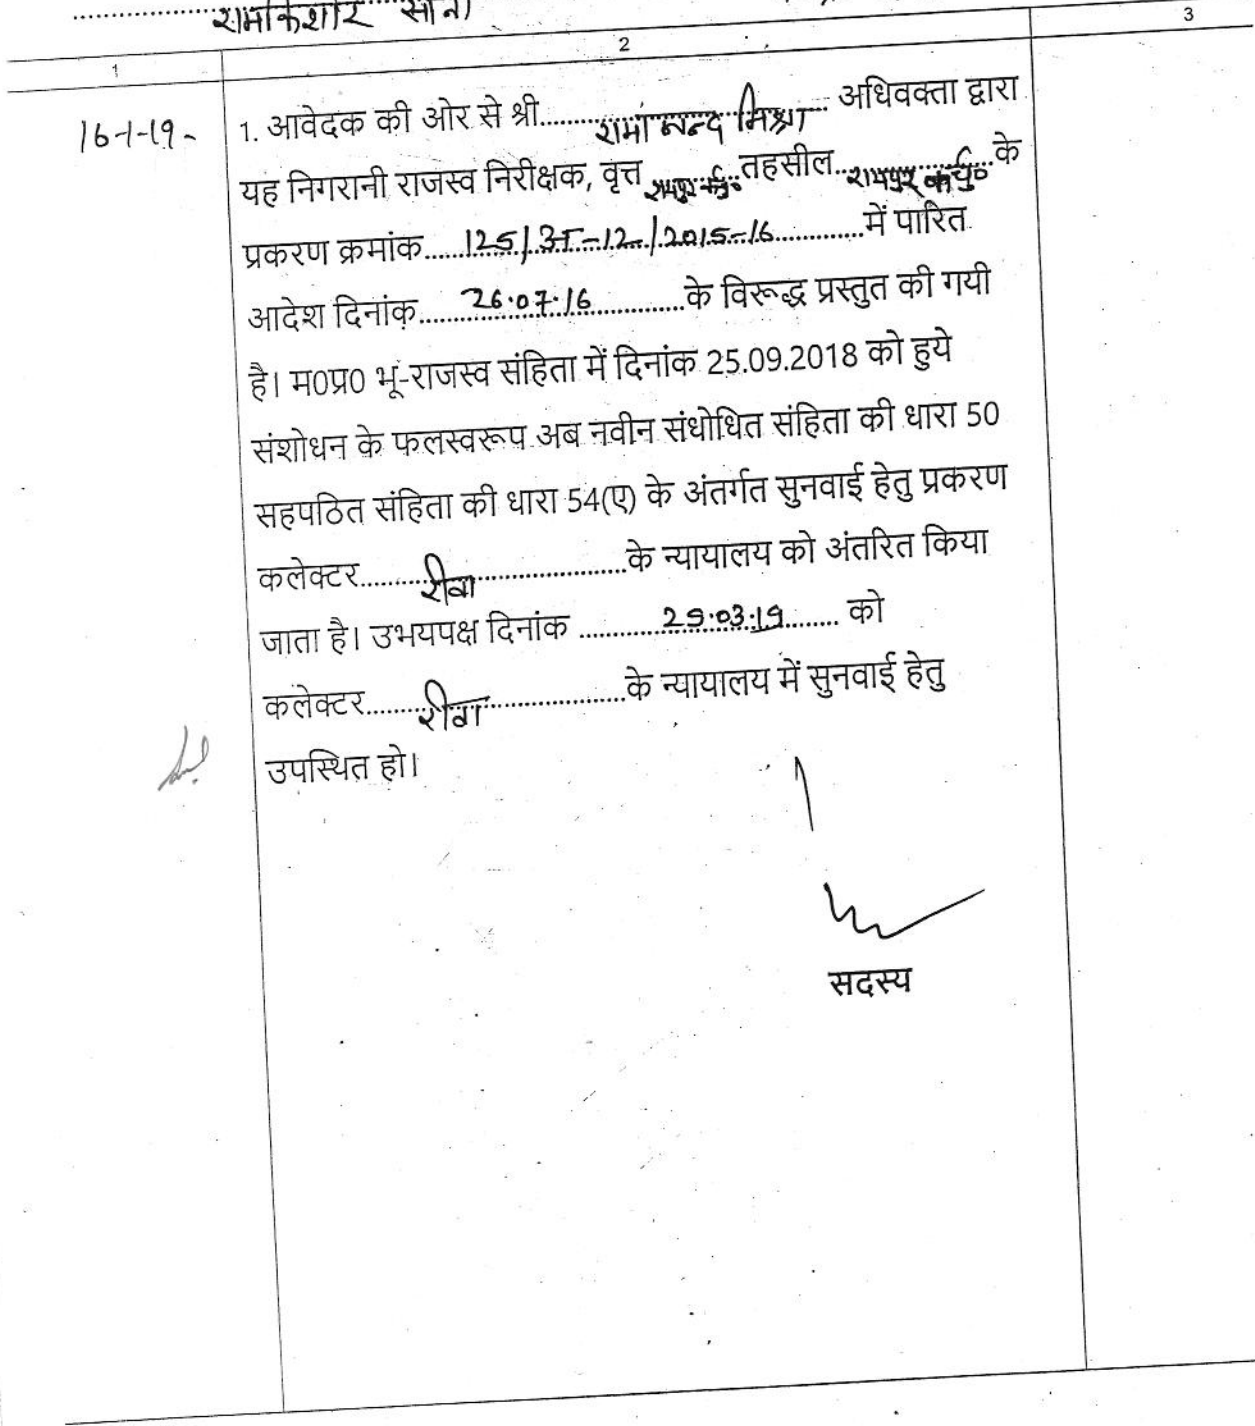 रामकिशोर सोनी
1 2 3
16-1-19- 1. आवेदक की ओर से श्री..........रामानन्द मिश्रा.......... अधिवक्ता द्वारा
यह निगरानी राजस्व निरीक्षक, वृत्त रायपुर कर्चु० तहसील रायपुर कर्चु० के
प्रकरण क्रमांक......125/अ-12/2015-16............में पारित
आदेश दिनांक......26.07.16............के विरूद्ध प्रस्तुत की गयी
है। म0प्र0 भू-राजस्व संहिता में दिनांक 25.09.2018 को हुये
संशोधन के फलस्वरूप अब नवीन संधोधित संहिता की धारा 50
सहपठित संहिता की धारा 54(ए) के अंतर्गत सुनवाई हेतु प्रकरण
कलेक्टर..........रीवा....................के न्यायालय को अंतरित किया
जाता है। उभयपक्ष दिनांक ............29.03.19........ को
कलेक्टर..........रीवा....................के न्यायालय में सुनवाई हेतु
उपस्थित हो।
सदस्य